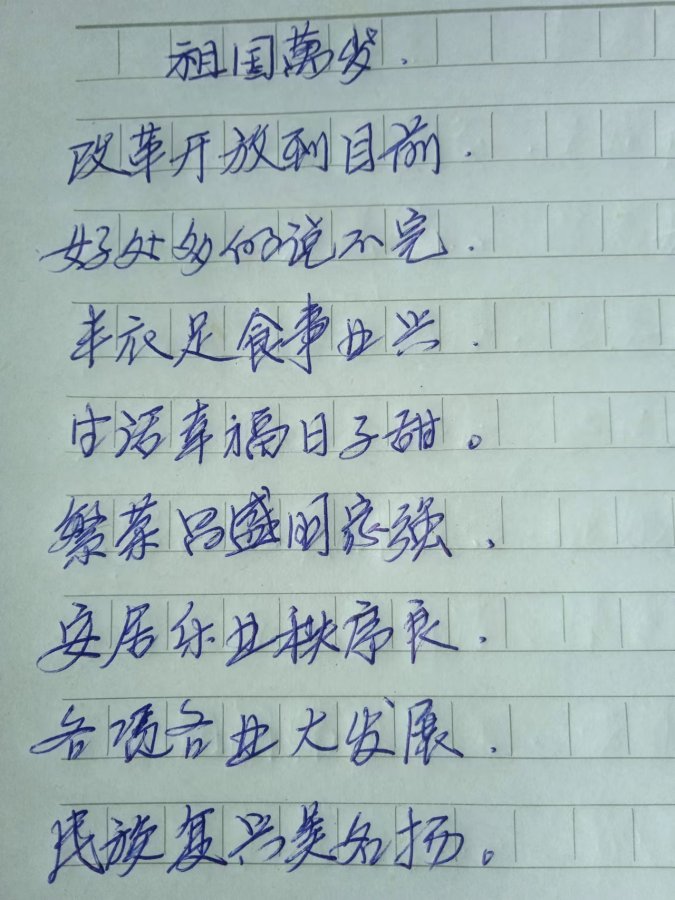 祖国萬岁.
改革开放到目前.
好处多得说不完.
丰衣足食事业兴.
生活幸福日子甜。
繁荣昌盛国家强、
安居乐业秩序良.
各项各业大发展.
民族复兴美名扬。